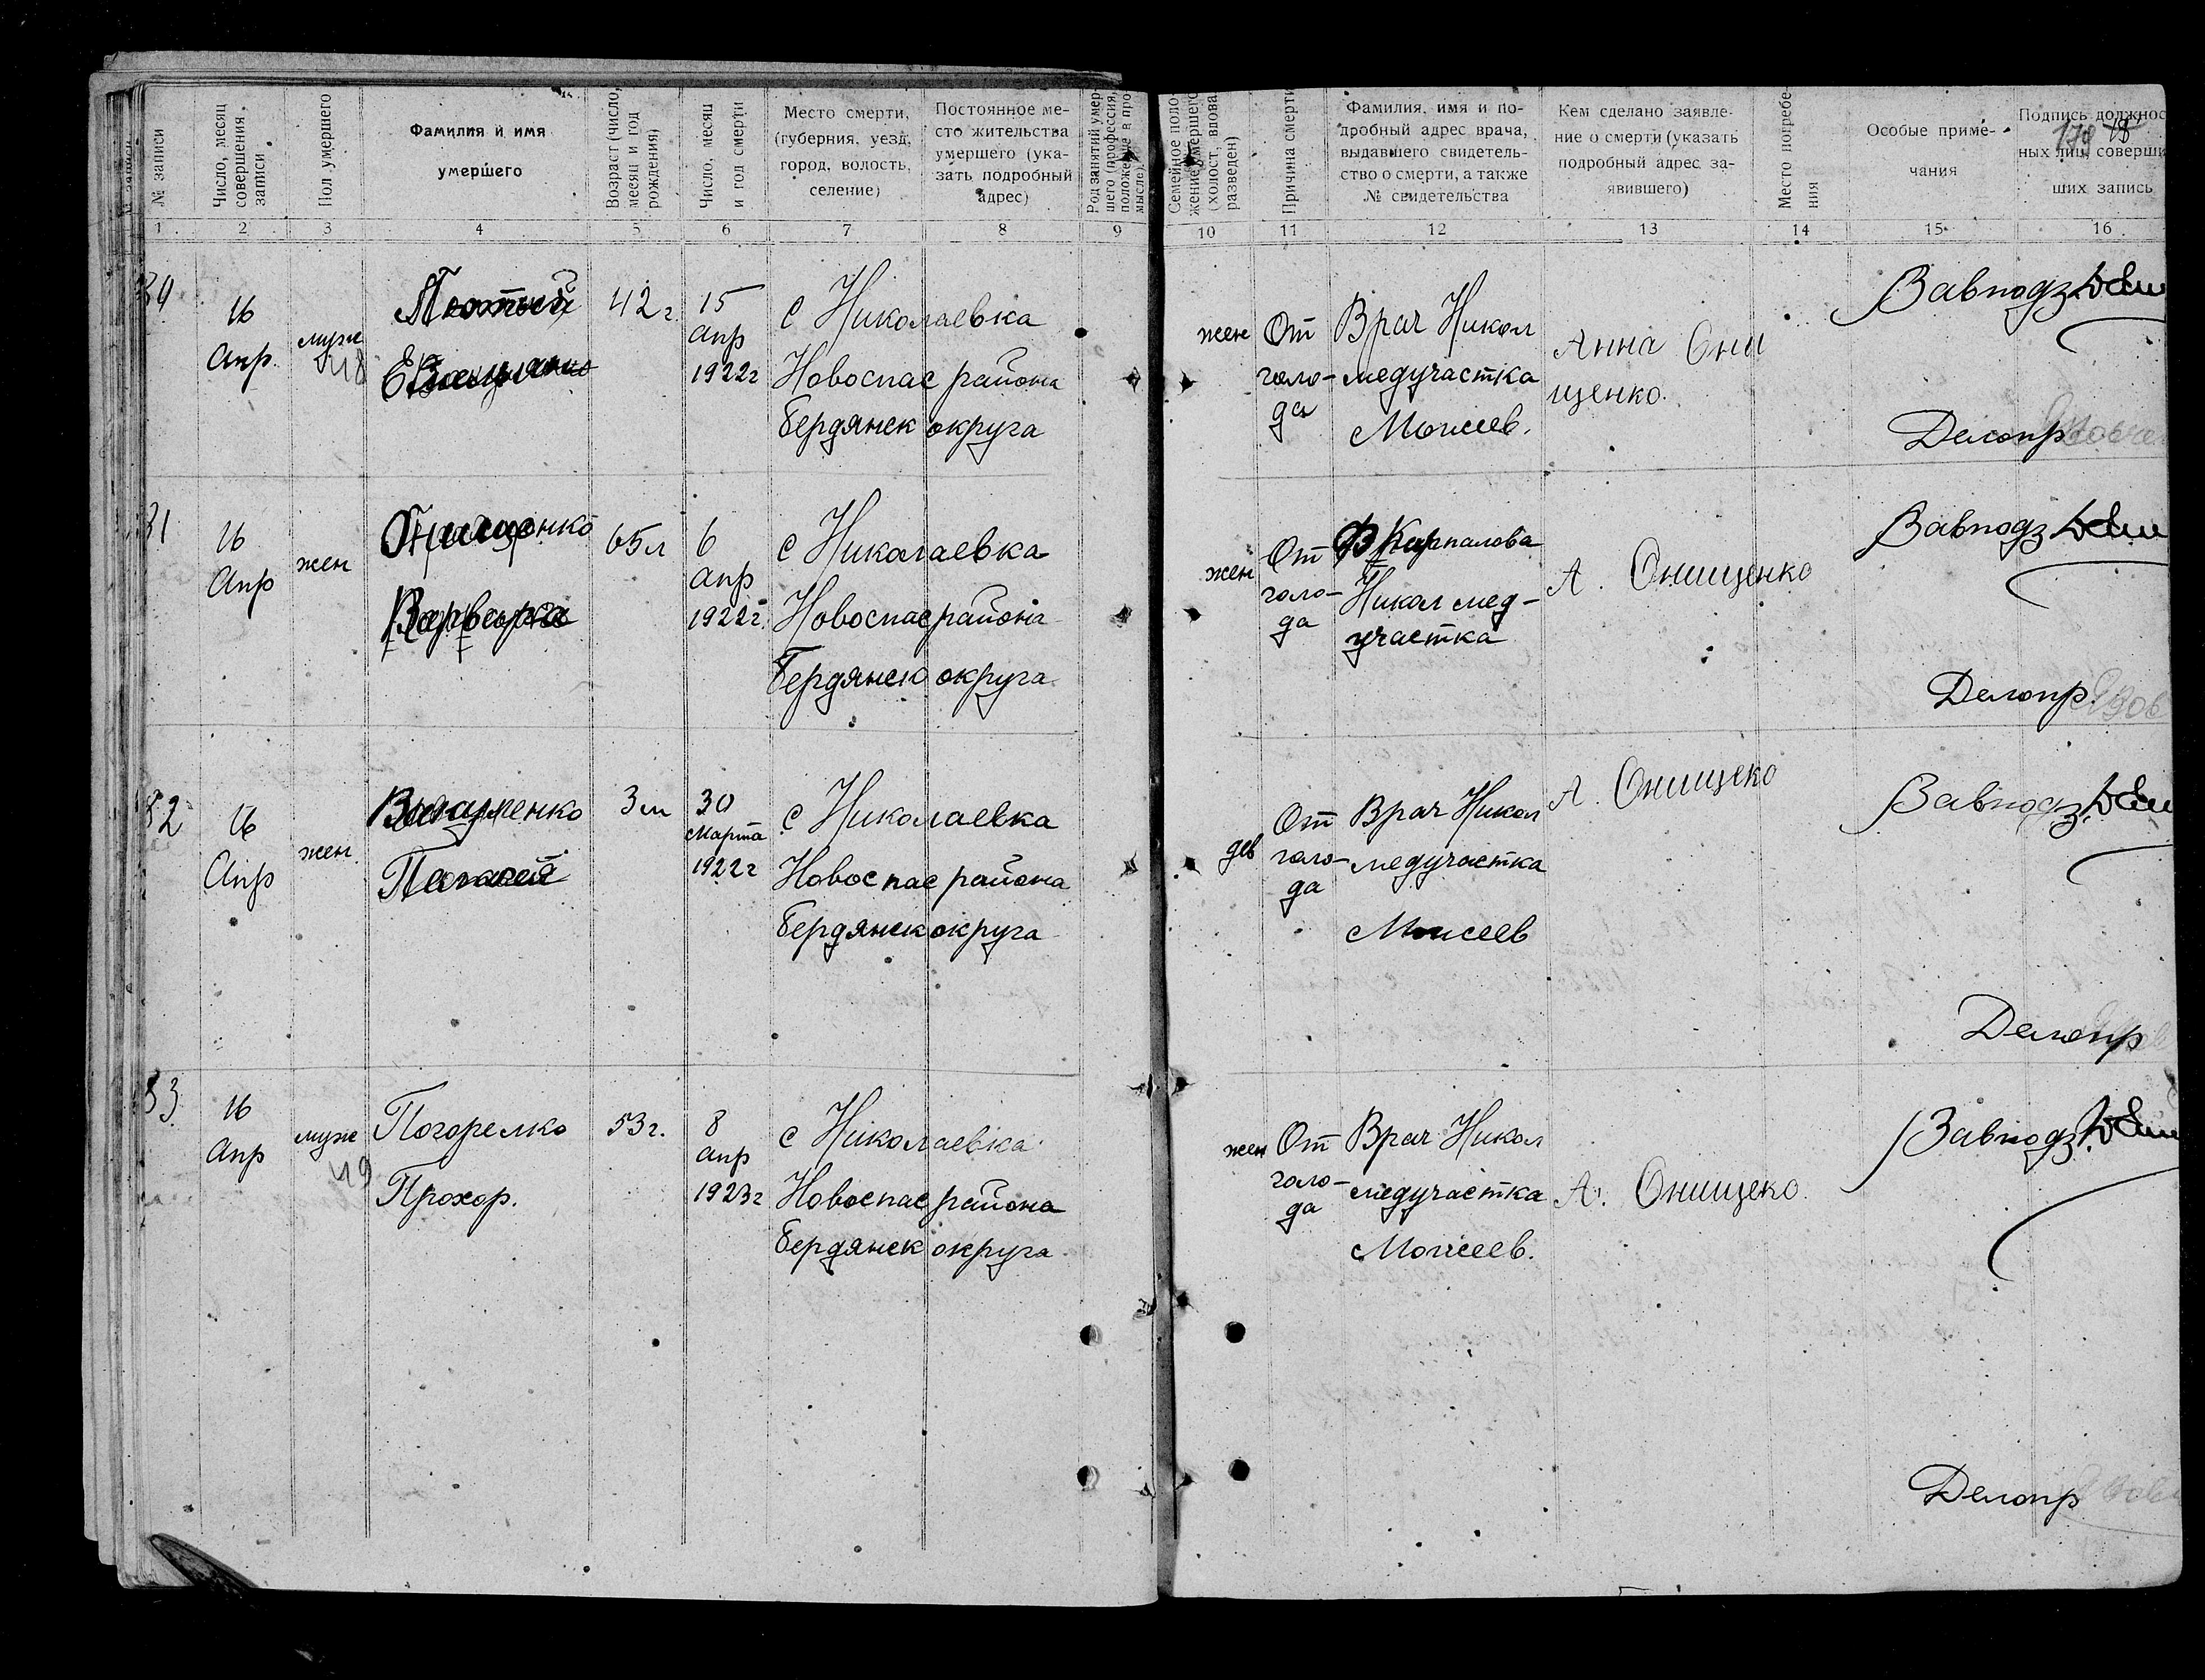 № записи
Число, месяц
совершения
записи
Пол умершего
Фамилия и имя
умершего
Возраст (число,
месяц и год
рождения)
Число, месяц
и год смерти
Место смерти,
(губерния, уезд,
город, волость,
селение)
Постоянное ме-
сто жительства
умершего (ука-
зать подробный
адрес)
Род занятий умер-
шего (профессия,
положение в про-
мысле)
Семейное поло-
жение умершего
(холост, вдова
разведен)
Причина смерти
Фамилия, имя и по-
дробный адрес врача,
выдавшего свидетель-
ство о смерти, а также
№ свидетельства
Кем сделано заявле-
ние о смерти (указать
подробный адрес за-
явившего)
Место погребе-
ния
Особые приме-
чания
Подпись должнос
ных лиц, соверши
ших запись
1 2 3 4 5 6 7 8 9 10 11 12 13 14 15 16
16
Апр.
муж
48
42 г.
15
апр
1922г
с Николаевка
Новоспас района
Бердянск округа
жен
От
голо-
да
Врач Никол
медучастка
Моисеев.
Анна Они
щенко.
Завподз.
Делопр
81
16
Апр
жен
Онищенко
Варвара
65 л
6
апр
1922г.
с Николаевка
Новоспас района
Бердянск округа
жен
От
голо-
да
Никол мед-
участка
А. Онищенко
Завподз
Делопр.
82
16
Апр
жен.
3 л
30
Марта
1922г
с Николаевка
Новоспас района
Бердянск округа
дев
От
голо-
да
Врач Никол
медучастка
Моисеев
А. Онищеко
Завподз.
Делопр
83
16
Апр
муж
49
Погорелко
Прохор.
53 г.
8
апр
1923г
с Николаевка
Новоспас района
Бердянск округа
жен
От
голо-
да
Врач Никол
медучастка
Моисеев.
А. Онищеко.
Завподз.
Делопр